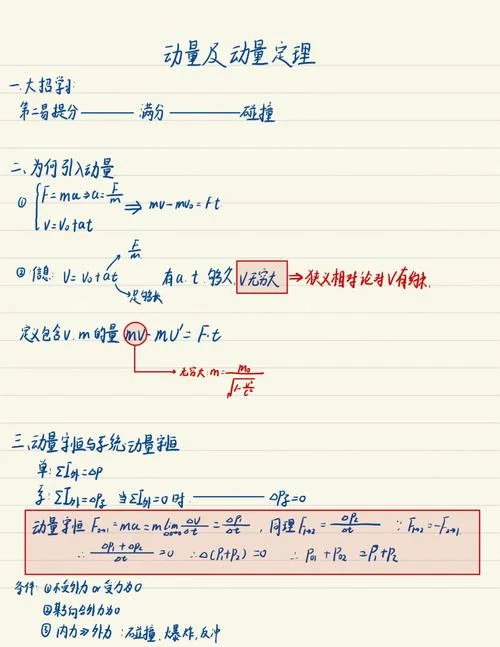 动量及动量定理
一.大招学习:
第二易提分——— 满分 ———— 碰撞
二、为何引入动量
① { F=ma⇒a=F/m ⇒ mv-mv₀=F·t
v=v₀+at
F/m
② 信息: V=V₀+at 有a.t.够久, V无穷大 ⇒ 狭义相对论对V有约束.
足够长
定义包含v.m的量 mv-mv'=F·t
无穷大:m=m₀/√(1-v²/c²)
三.动量守恒与系统动量守恒
单: ΣI外=ΔP
系: ΣI外=ΔP系 当ΣI外=0时. ———— ΔP系=0
动量守恒 F₂→₁=ma=m lim Δt→0 ΔV/Δt=ΔP₁/Δt, 同理F₁→₂=ΔP₂/Δt ∵F₁→₂=-F₂→₁
∴ (ΔP₁+ΔP₂)/Δt=0 ∴Δ(P₁+P₂)=0 ∴ P₀₁+P₀₂=P₁+P₂
条件: ①不受外力 or 受力为0
②某方向合外力为0
③ 内力≫外力:碰撞,爆炸,反冲